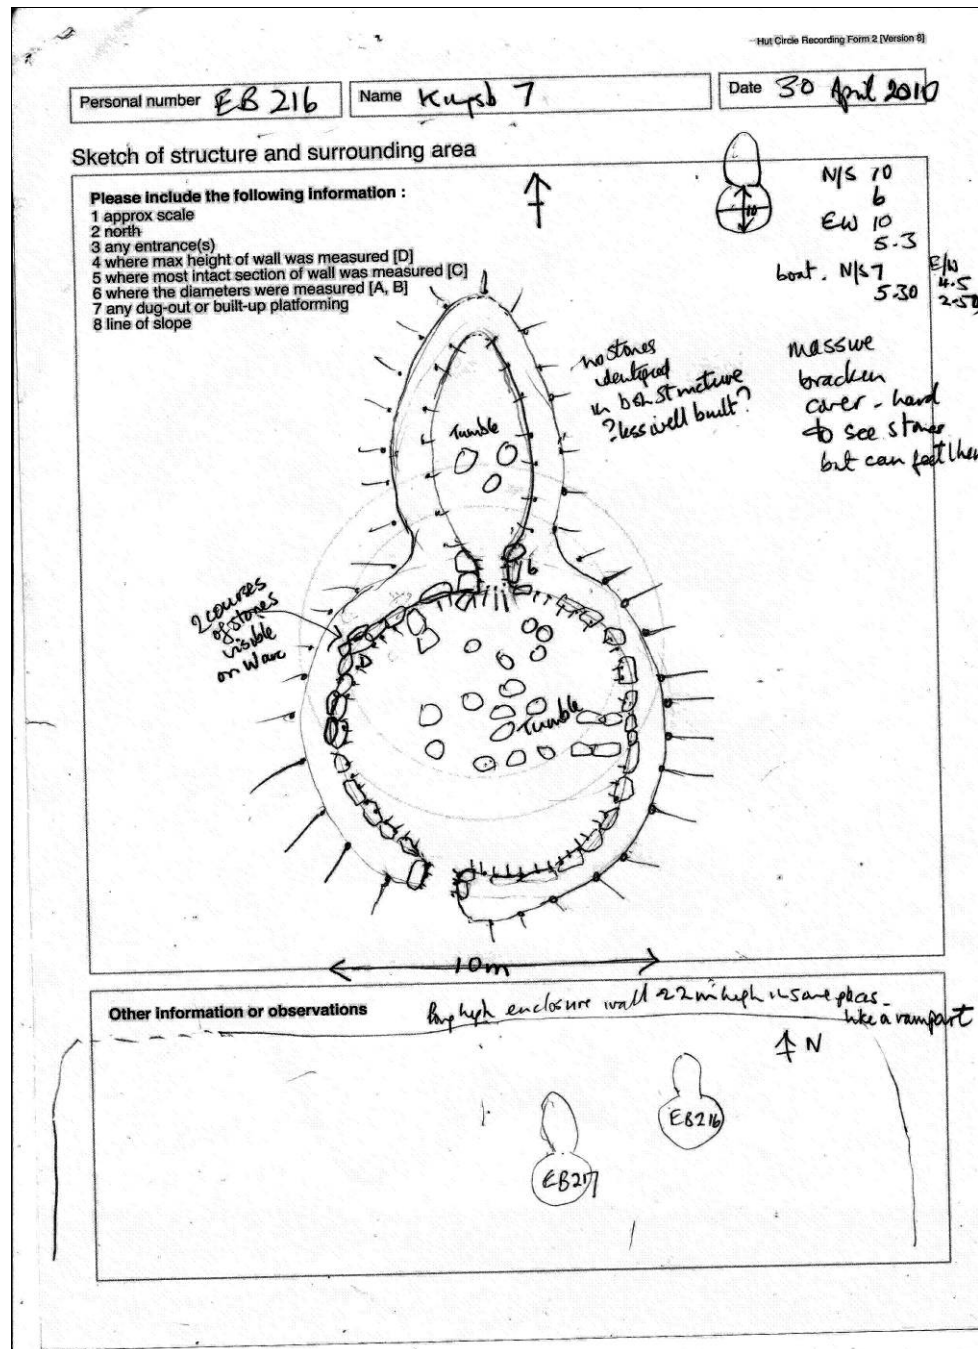 Hut Circle Recording Form 2 [Version 8]
Personal number EB 216
Name 7
Date 30 April 2010
Sketch of structure and surrounding area
Please include the following information :
1 approx scale
2 north
3 any entrance(s)
4 where max height of wall was measured [D]
5 where most intact section of wall was measured [C]
6 where the diameters were measured [A, B]
7 any dug-out or built-up platforming
8 line of slope
10
N/S 10
6
EW 10
5.3
boat. N/S 7
5.30
E/W
4.5
2.50
no stones
identified
in boat structure
? less well built?
massive
bracken
cover - hard
to see stones
but can feel them
Tumble
2 courses
of stones
visible
on
D
6
Tumble
10m
Other information or observations
high enclosure wall 22m high in some places -
like a rampart
N
EB216
EB217